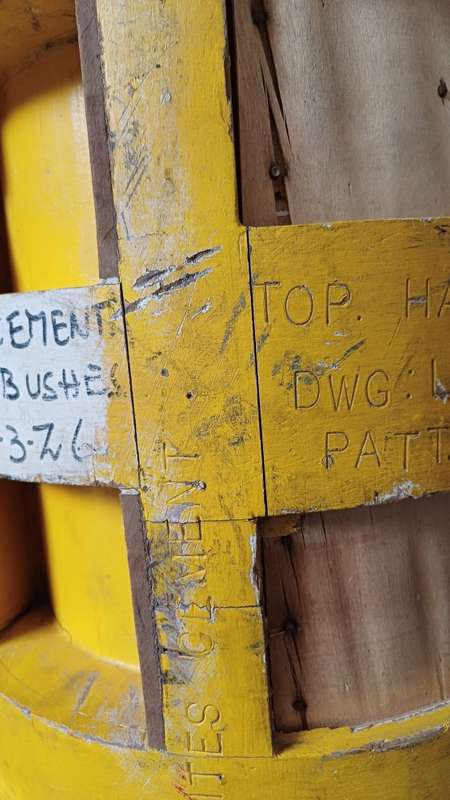 CEMENT
BUSHES
-3-76
TOP. HA
DWG: L
PATT.
ITES CEMENT